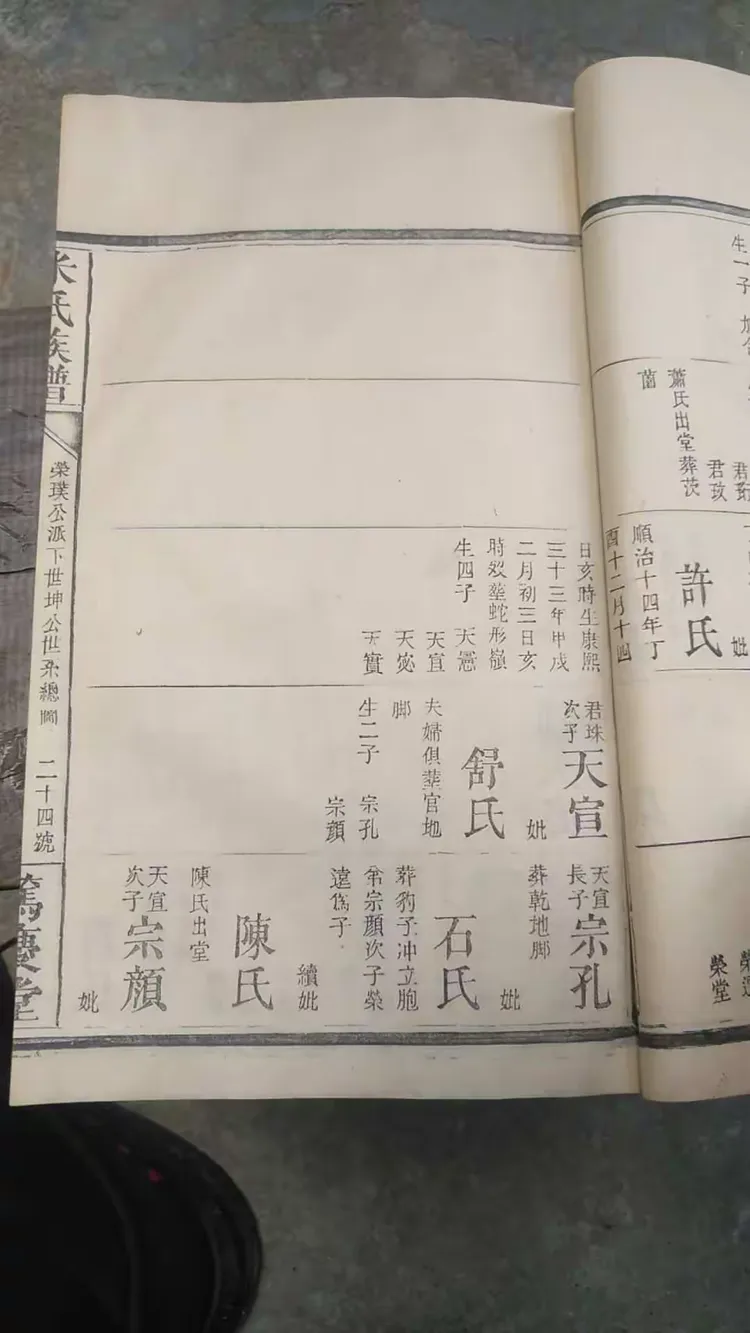 生一子
蕭氏出堂葬茨
菌
君玫
妣
許氏
順治十四年丁
酉十二月十四
榮堂
日亥時生康熙
三十三年甲戌
二月初三日亥
時歿塟蛇形嶺
生四子 天憲
天宣
天宓
天寶
君珠
次子
天宣
妣
舒氏
夫婦俱塟官地
脚
生二子 宗孔
宗顏
天宜
長子
宗孔
葬乾地脚
妣
石氏
葬豹子冲立胞
弟宗顏次子榮
達爲子
續妣
陳氏
陳氏出堂
天宜
次子
宗顏
妣
米氏族譜
榮璞公派下世坤公世系總圖 二十四號
篤慶堂